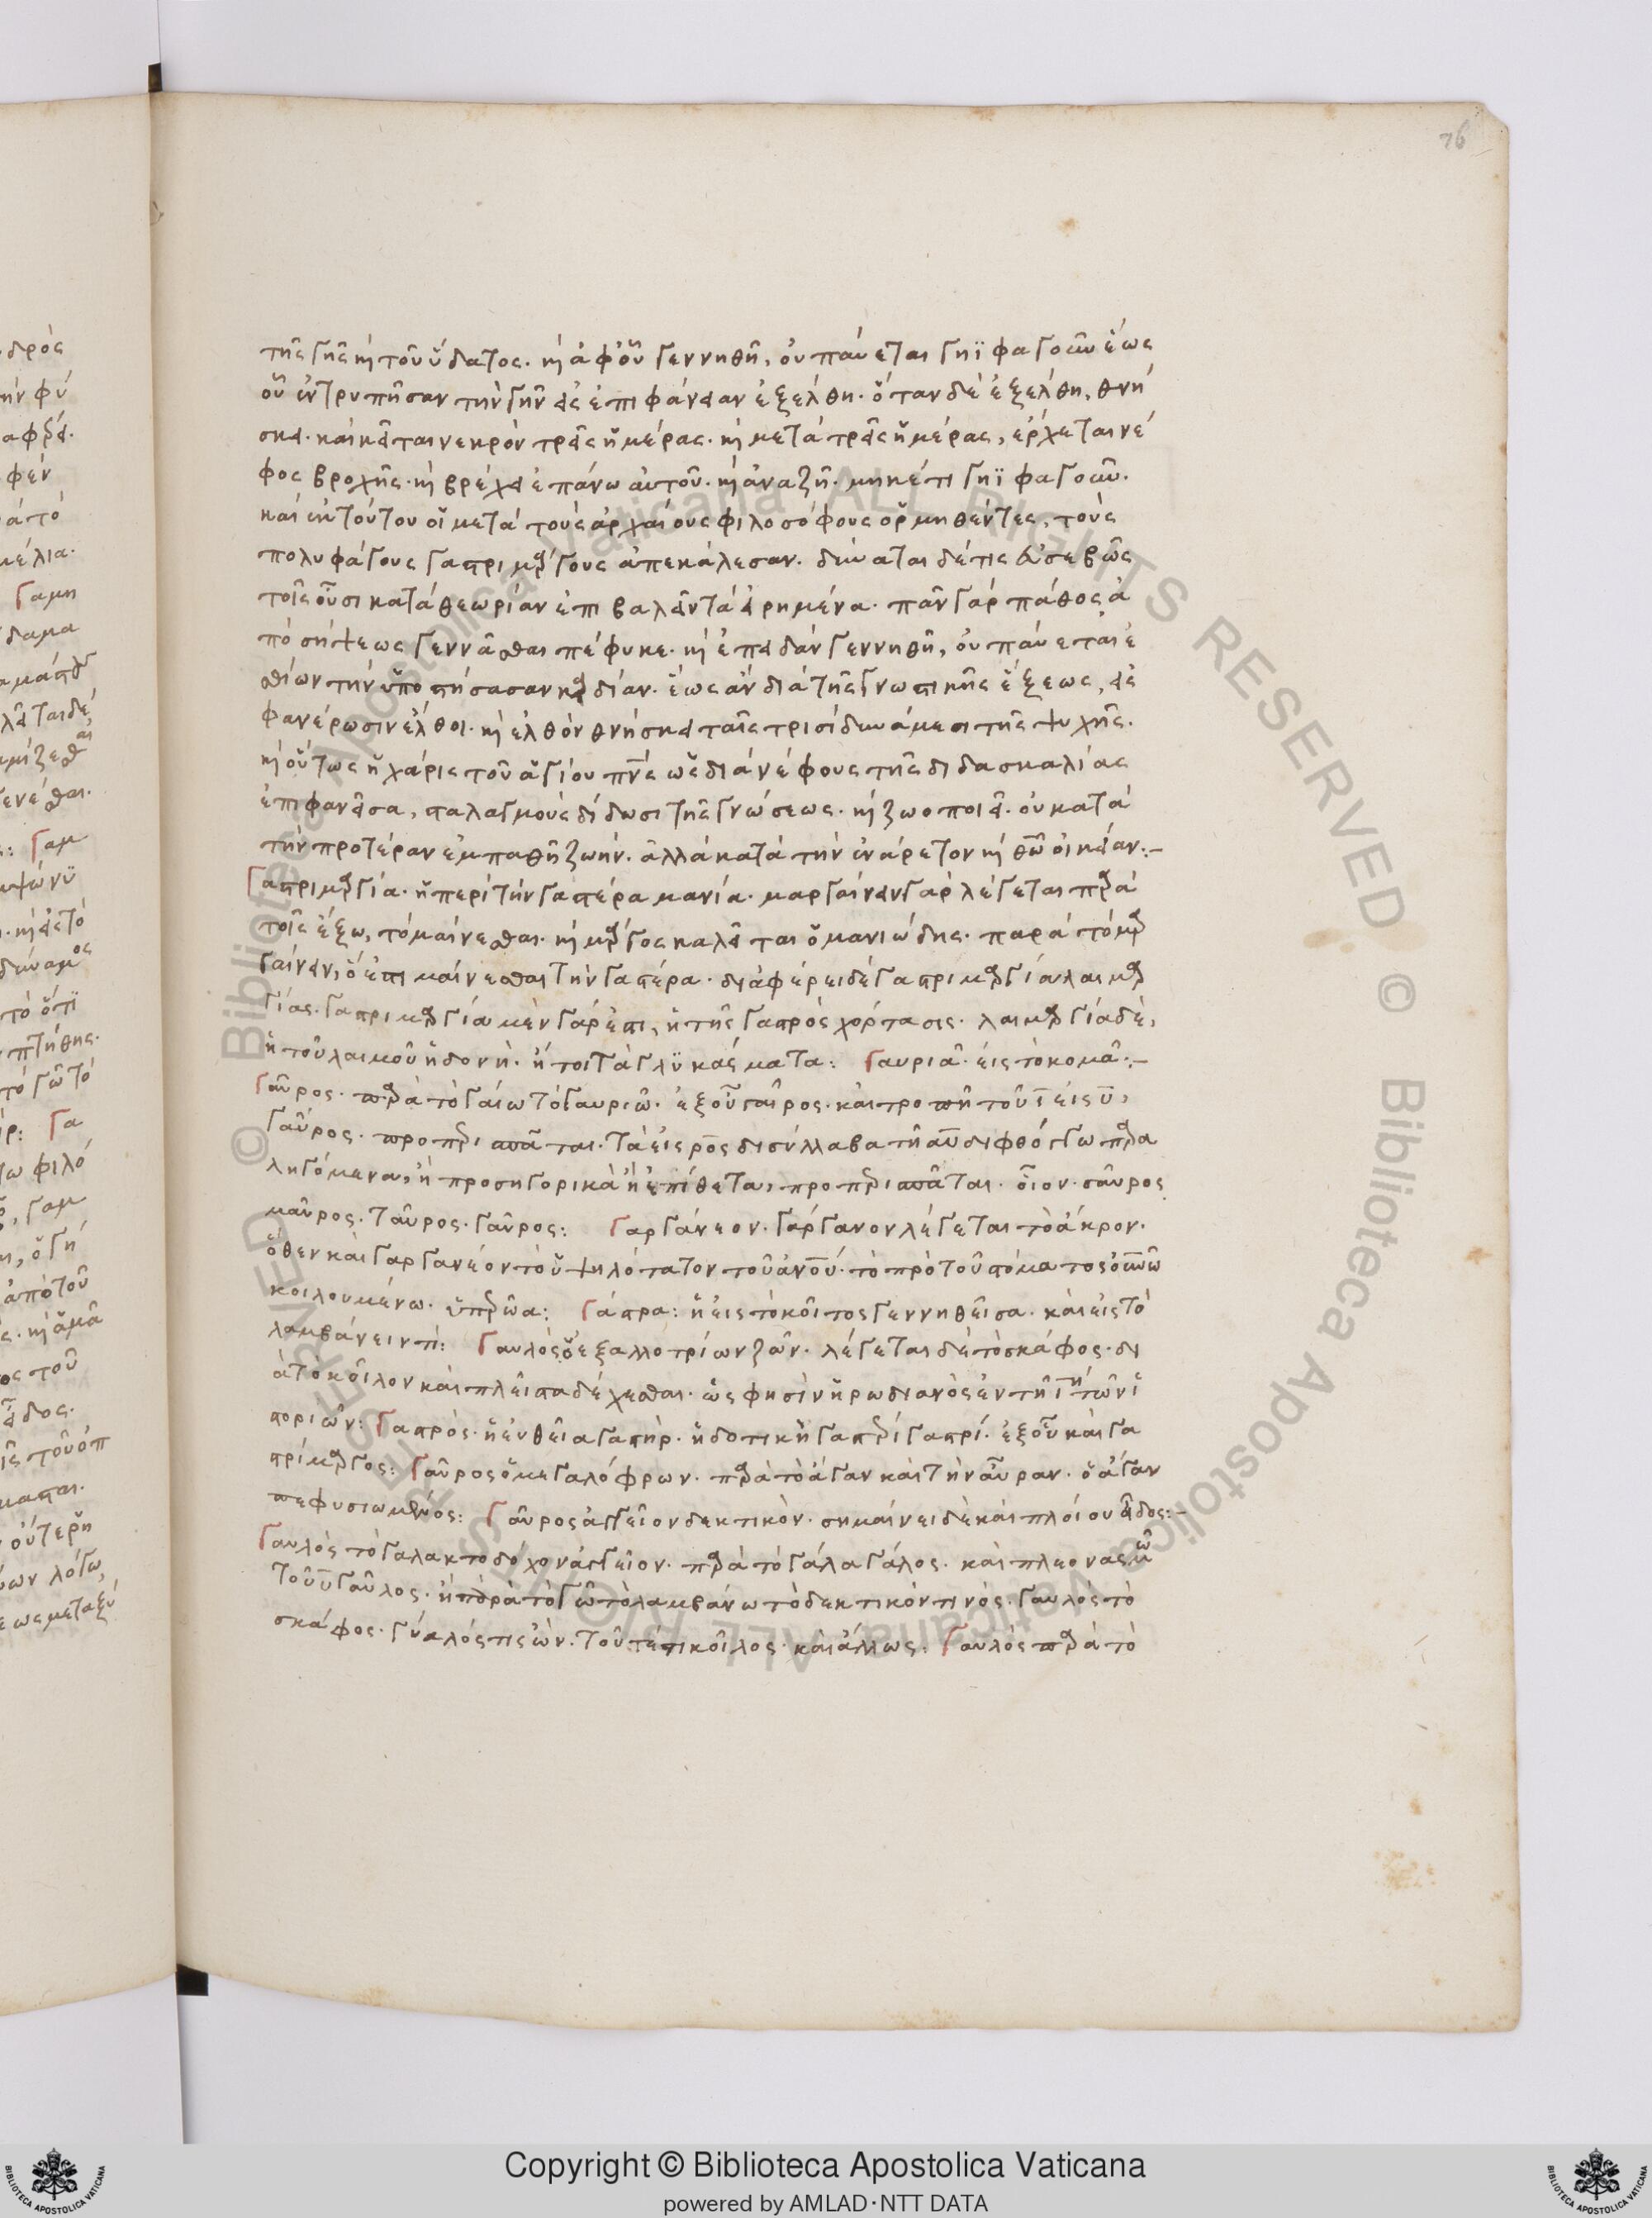 76
τῆς γῆς καὶ τοῦ ὕδατος. καὶ ἀφ' οὗ γεννηθῇ, οὐ παύεται γηϊφαγοῦν ἕως
οὗ ἐντρυπῆσαν τὴν γῆν εἰς ἐπιφάνειαν ἐξέλθη. ὅταν δὲ ἐξέλθη, θνή
σκει. καὶ κεῖται νεκρὸν τρεῖς ἡμέρας. καὶ μετὰ τρεῖς ἡμέρας, ἔρχεται νέ
φος βροχῆς. καὶ βρέχει ἐπάνω αὐτοῦ. καὶ ἀναζῆ. μηκέτι γηϊφαγοῦν.
καὶ ἐκ τούτου οἱ μετὰ τοὺς ἀρχαίους φιλοσόφους ὁρμηθέντες, τοὺς
πολυφάγους γαστριμάργους ἀπεκάλεσαν. δύναται δέ τις εὐσεβῶς
τοῖς οὖσι κατὰ θεωρίαν ἐπιβαλεῖν τὰ εἰρημένα. πᾶν γὰρ πάθος ἀ
πὸ σήψεως γεννᾶσθαι πέφυκε. καὶ ἐπειδὰν γεννηθῆ, οὐ παύεται ἐ
σθίων τὴν ὑποστήσασαν καρδίαν. ἕως ἂν διὰ τῆς γνωστικῆς ἕξεως, εἰς
φανέρωσιν ἔλθοι. καὶ ἐλθὸν θνήσκει ταῖς τρισὶ δυνάμεσι τῆς ψυχῆς.
καὶ οὕτως ἡ χάρις τοῦ ἁγίου πνς ὡς διὰ νέφους τῆς διδασκαλίας
ἐπιφανεῖσα, σταλαγμοὺς δίδωσι τῆς γνώσεως. καὶ ζωοποιεῖ. οὐ κατὰ
τὴν προτέραν ἐμπαθῆ ζωήν. ἀλλὰ κατὰ τὴν ἐνάρετον καὶ θῶ οἰκείαν:–
Γαστριμαργία. ἡ περὶ τὴν γαστέρα μανία. μαργαίνειν γὰρ λέγεται παρὰ
τοῖς ἔξω, τὸ μαίνεσθαι. καὶ μάργος καλεῖται ὁ μανιώδης. παρὰ τὸ μαρ
γαίνειν, ὅ ἐστι μαίνεσθαι τὴν γαστέρα. διαφέρει δὲ γαστριμαργία λαιμαρ
γίας. γαστριμαργία μὲν γάρ ἐστι, ἡ τῆς γαστρὸς χόρτασις. λαιμαργία δὲ,
ἡ τοῦ λαιμοῦ ἡδονὴ. ἤτοι τὰ γλυκάσματα: Γαυριᾶ. εἰς τὸ κομᾶ:–
Γαῦρος. παρὰ τὸ γαίω τὸ γαυριῶ. ἐξ οὗ γαῖρος. καὶ τροπῆ τοῦ ι εἰς υ,
γαῦρος. προπερισπᾶται. τὰ εἰς ρος δισύλλαβα τῆ αυ διφθόγγω παρα
ληγόμενα, ἢ προσηγορικὰ ἢ ἐπίθετα, προπερισπᾶται. οἷον. σαῦρος
μαῦρος. ταῦρος. γαῦρος: Γαργάνεον. γάργανον λέγεται τὸ ἄκρον.
ὅθεν καὶ γαργανέον τὸ ὑψηλότατον τοῦ ἀνοῦ. τὸ πρὸ τοῦ στόματος
κοιλουμένω. ὑπερῶα: Γάστρα: ἡ εἰς τὸ κοῖτος γεννηθεῖσα. καὶ εἰς τὸ
λαμβάνειν τὶ: Γαυλὸς ὁ ἐξ αλλοτρίων ζῶν. λέγεται δὲ τὸ σκάφος. δι
ὰ τὸ κοῖλον καὶ πλεῖστα δέχεσθαι. ὥς φησὶν ἡρωδιανὸς ἐν τῆ ιη τῶν ἱ
στοριῶν: Γαστρὸς. ἡ ἐνθεῖα γαστὴρ. ἡ δοτικὴ γαστέρι γαστρί. ἐξ οὗ καὶ γα
στρίμαργος: Γαῦρος ὁ μεγαλόφρων. παρὰ τὸ ἄγαν καὶ τὴν αὔραν. ὁ ἄγαν
πεφυσιωμένος: Γαῦρος ἀγγεῖον δεκτικὸν. σημαίνει δὲ καὶ πλοίου εἶδος:–
Γαυλὸς τὸ γαλακτοδόχον ἀγγεῖον. παρὰ τὸ γάλα γάλος. καὶ πλεονασμῶ
τοῦ υ γαῦλος. ἢ παρὰ τὸ γῶ τὸ λαμβάνω τὸ δεκτικόν τινός. γαυλὸς τὸ
σκάφος. γύαλός τις ὢν. τουτέστι κοῖλος. καὶ ἄλλως: Γαυλὸς παρὰ τὸ